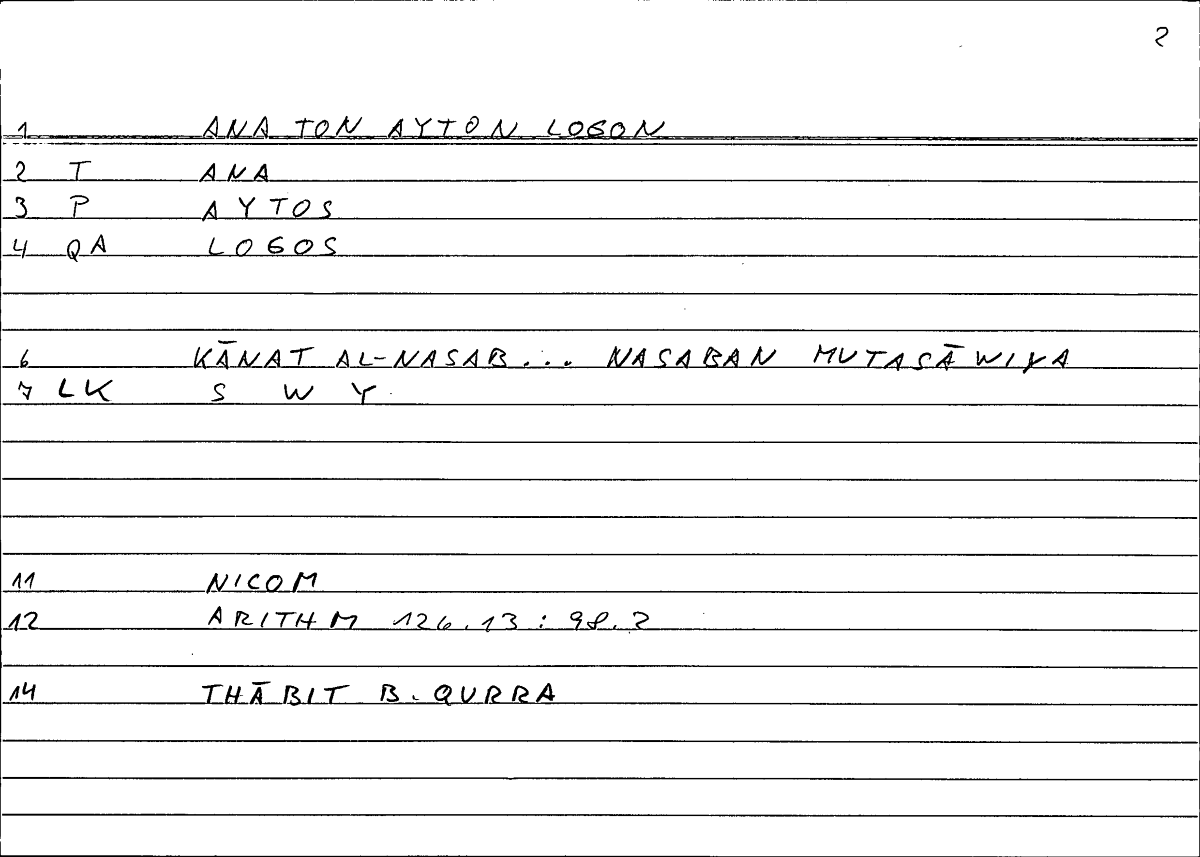 2
1 ANA TON AYTON LOGON
2 T ANA
3 P AYTOS
4 QA LOGOS
6 KĀNAT AL-NASAB... NASABAN MUTASĀWIYA
7 LK S W Y
11 NICOM
12 ARITHM 126.13 : 98.2
14 THĀBIT B. QURRA